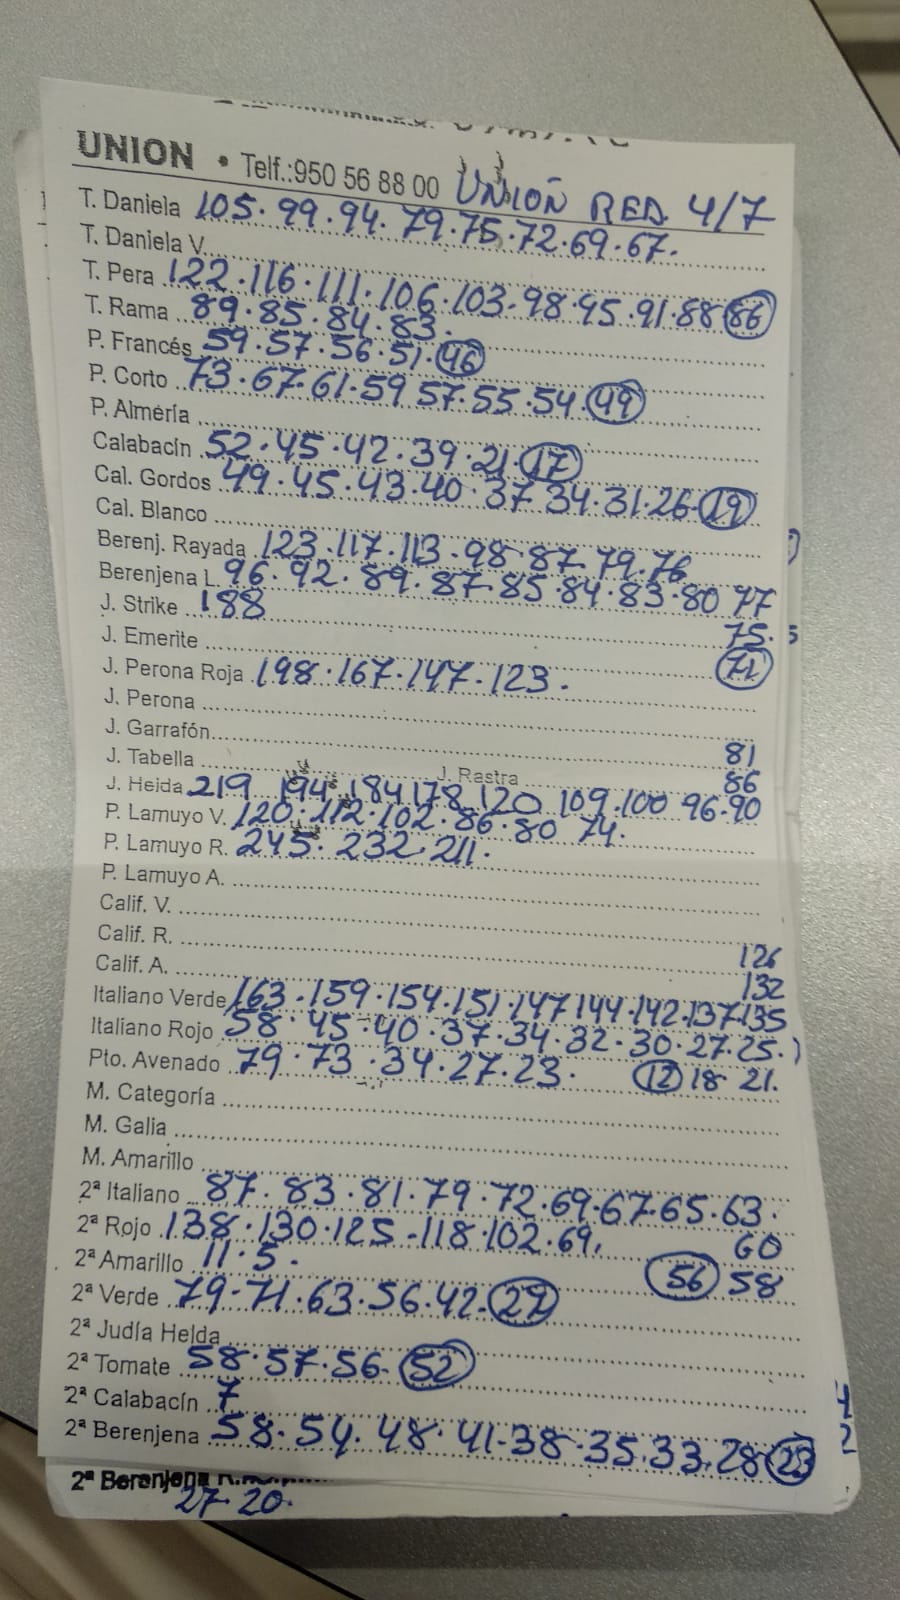 UNION • Telf.:950 56 88 00 UNION RED. 4/7
T. Daniela 105.99.94.79.75.72.69.67.
T. Daniela V.
T. Pera 122.116.111.106.103.98.95.91.88 86
T. Rama 89.85.84.83.
P. Francés 59.57.56.51.46
P. Corto 73.67.61.59 57.55.54.49
P. Almería
Calabacín 52.45.42.39.21.17
Cal. Gordos 49.45.43.40.37 34.31.26.19
Cal. Blanco
Berenj. Rayada 123.117.113.98.87.79.76
Berenjena L. 96.92.89.87.85.84.83.80 77
J. Strike 188 75.
J. Emerite 71
J. Perona Roja 198.167.147.123.
J. Perona
J. Garrafón 81
J. Tabella J. Rastra 86
J. Helda 219 194 184 178 120 109.100 96.90
P. Lamuyo V. 120.112.102.86.80 74.
P. Lamuyo R. 245.232.211.
P. Lamuyo A.
Calif. V.
Calif. R. 126
Calif. A. 132
Italiano Verde 163.159.154.151.147 144.142.137.135
Italiano Rojo 58.45-40.37.34.32.30.27.25.
Pto. Avenado 79.73.34.27.23. 12 18 21.
M. Categoría
M. Galia
M. Amarillo
2ª Italiano 87.83.81.79.72.69.67.65.63.
2ª Rojo 138.130.125-118.102.69. 60
2ª Amarillo 11.5. 56 58
2ª Verde 79-71.63.56.42.29
2ª Judía Helda
2ª Tomate 58.57.56.52
2ª Calabacín 7
2ª Berenjena 58.54.48.41-38.35.33.28 23
2ª Berenjena
27.20.